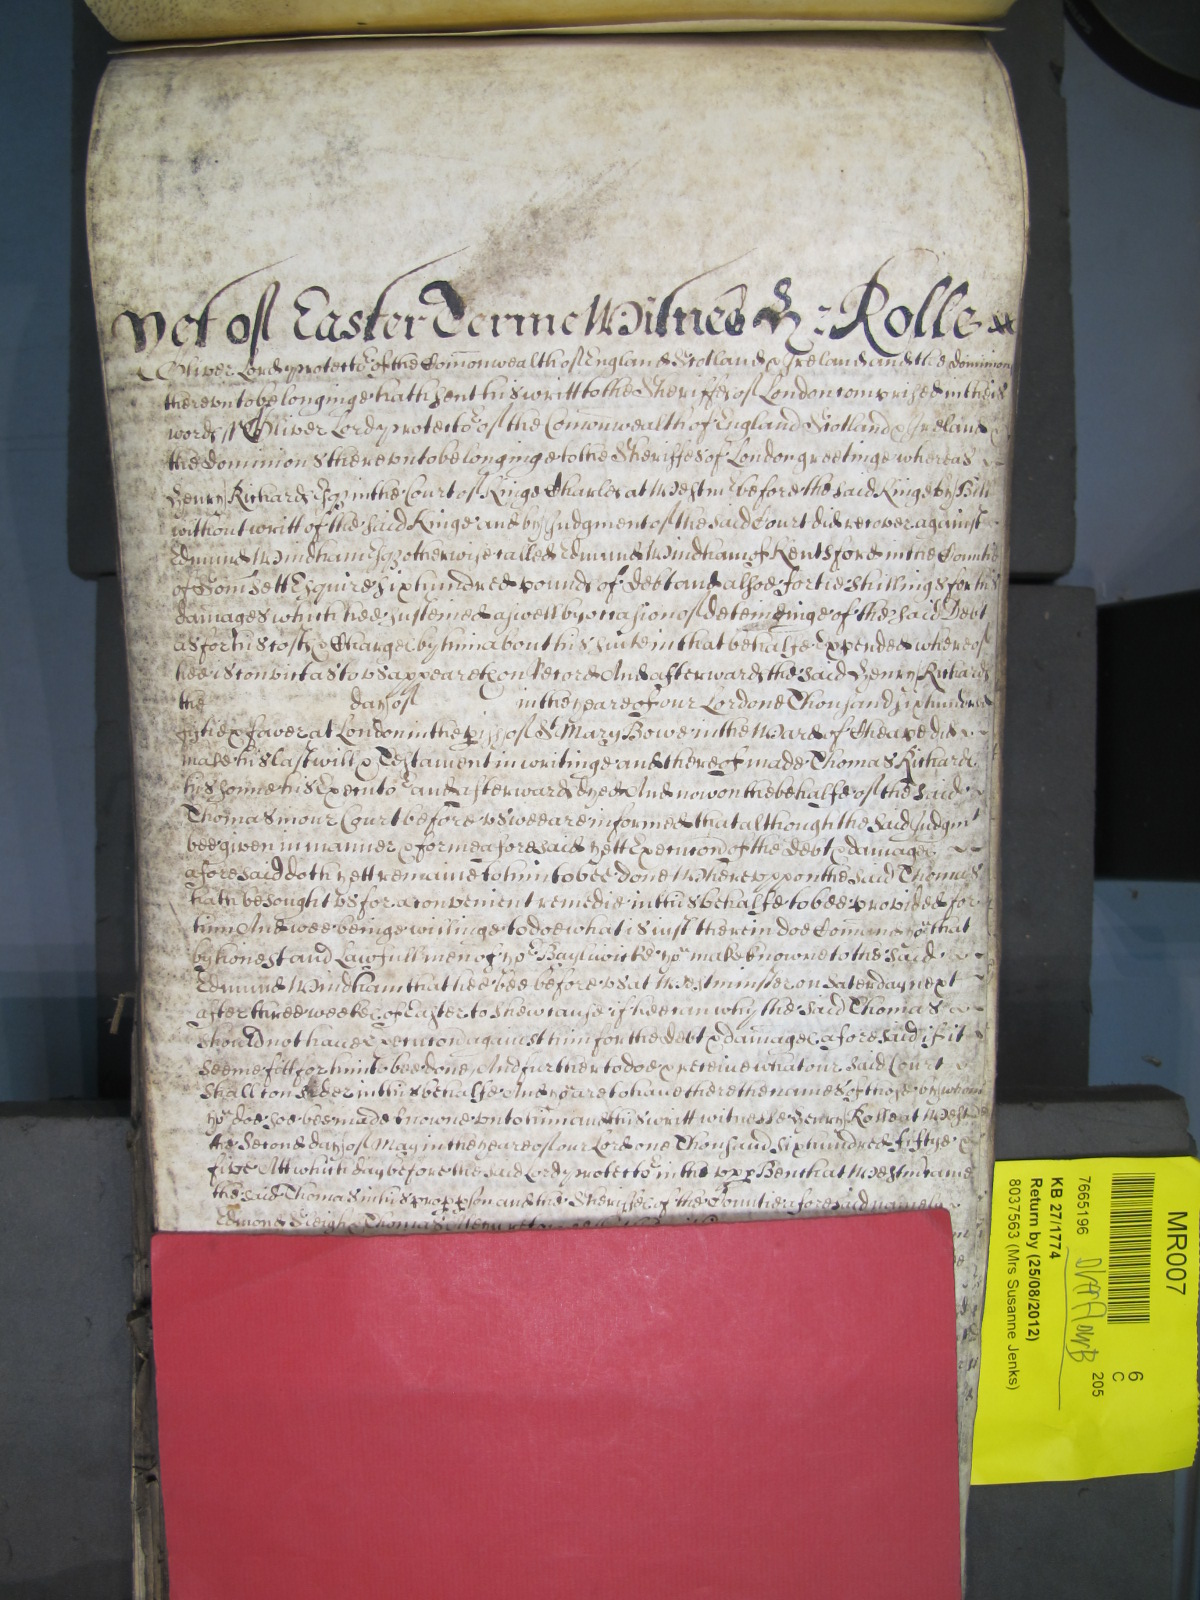 Yet of Easter Terme Witnes H: Rolle
Oliver Lord protector of the Comonwealth of England Scotland & Ireland and the dominions
thereunto belonginge hath sent his writt to the Sheriffes of London comprised in theis
words ss Oliver Lord protector of the Comonwealth of England Scotland & Ireland &
the dominions thereunto belonginge to the Sheriffes of London greetinge whereas
Henry Richards Esqr in the Court of Kinge Charles at Westmr before the said Kinge by Bill
without writt of the said Kinge and by Judgment of the said Court did recover against
Edmund Windham Esqr otherwise called Edmund Windham of Kentsford in the Countie
of Somsett Esquire six hundred pounds of debt and alsoe fortie shillings for his
damages which hee susteined aswell by occasion of deteininge of the said Debt
as for his costs & Charges by him about his suite in that behalfe expended whereof
hee is convict as to us appeareth on record And afterwards the said Henry Richards
the day of in the yeare of our Lord one Thousand six hundred
fiftie & fower at London in the pish of St Mary Bowe in the Ward of Cheape did
make his last will & Testament in writinge and thereof made Thomas Richards
his sonne his Executor and afterwards dyed And now on the behalfe of the said
Thomas in our Court before us wee are informed that although the said Judgmt
bee given in manner & forme aforesaid yett Execucon of the debt & damages
aforesaid doth yett remaine to him to bee done Whereuppon the said Thomas
hath besought us for a convenient remedie in this behalfe to bee provided for
him And wee beinge willinge to doe what is just therein doe Comand you that
by honest and Lawfull men of yor Bayliwicke you make knowne to the said
Edmund Windham that hee bee before us at Westminster on Saterday next
after three weekes of Easter to shew cause if hee can why the said Thomas
should not have Execucon against him for the debt & damages aforesaid if it
seeme fitt for him to bee done And further to doe & receive what our said Court
shall consider in this behalfe And you are to have there the names of those by whom
you doe soe bee made knowne unto him and this writt witnesse Henry Rolle at Westmr
the second day of May in the yeare of our Lord one Thousand six hundred fiftye &
five Att which day before the said Lord protector in the upp Bench at Westmr came
the said Thomas in his proper pson and the Sheriffes of the Countie aforesaid namely
Edmond Sleigh & Thomas
MR007
7665196
6
C
205
KB 27/1774
Return by (25/08/2012)
8037563 (Mrs Susanne Jenks)